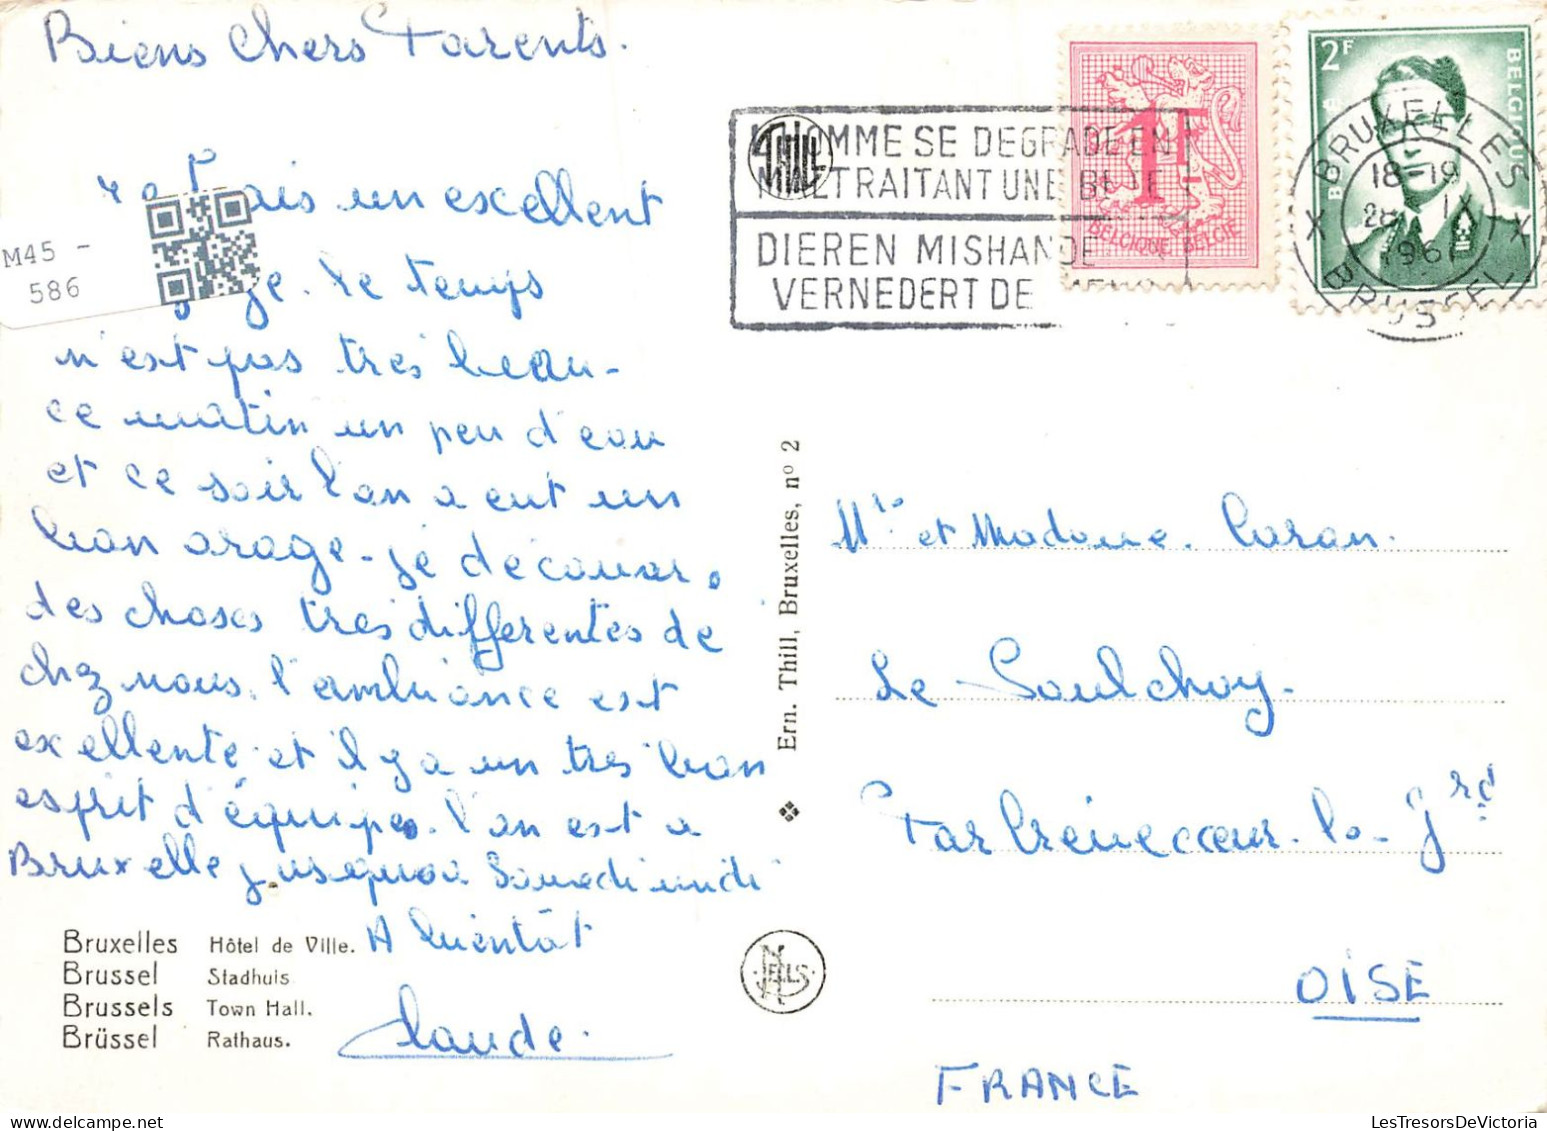 Biens Chers Parents.
fais un excellent
M45 -
586
le temps
n'est pas tres beau-
ce matin un peu d'eau
et ce soir l'on a eut un
bon orage - je décou
des choses tres differentes de
chez nous. l'ambiance est
excellente et il y a un tres bon
esprit d'équipe. l'on est a
Bruxelle jusqu'a Samedi midi
A bientôt
Claude.
Bruxelles Hôtel de Ville.
Brussel Stadhuis
Brussels Town Hall.
Brüssel Rathaus.
Ern. Thill, Bruxelles, nº 2
NELS
THILL
L'HOMME SE DEGRADE EN
MALTRAITANT UNE BETE
DIEREN MISHANDE
VERNEDERT DE
1F
BELGIQUE BELGIE
2F
BELGIQUE
BRUXELLES X
18-19
28 IX
196
X BRUSSEL
Mr et Madame. Caron.
Le Saulchoy-
Par Crèvecoeur-le-Grd
OISE
FRANCE
LesTresorsDeVictoria